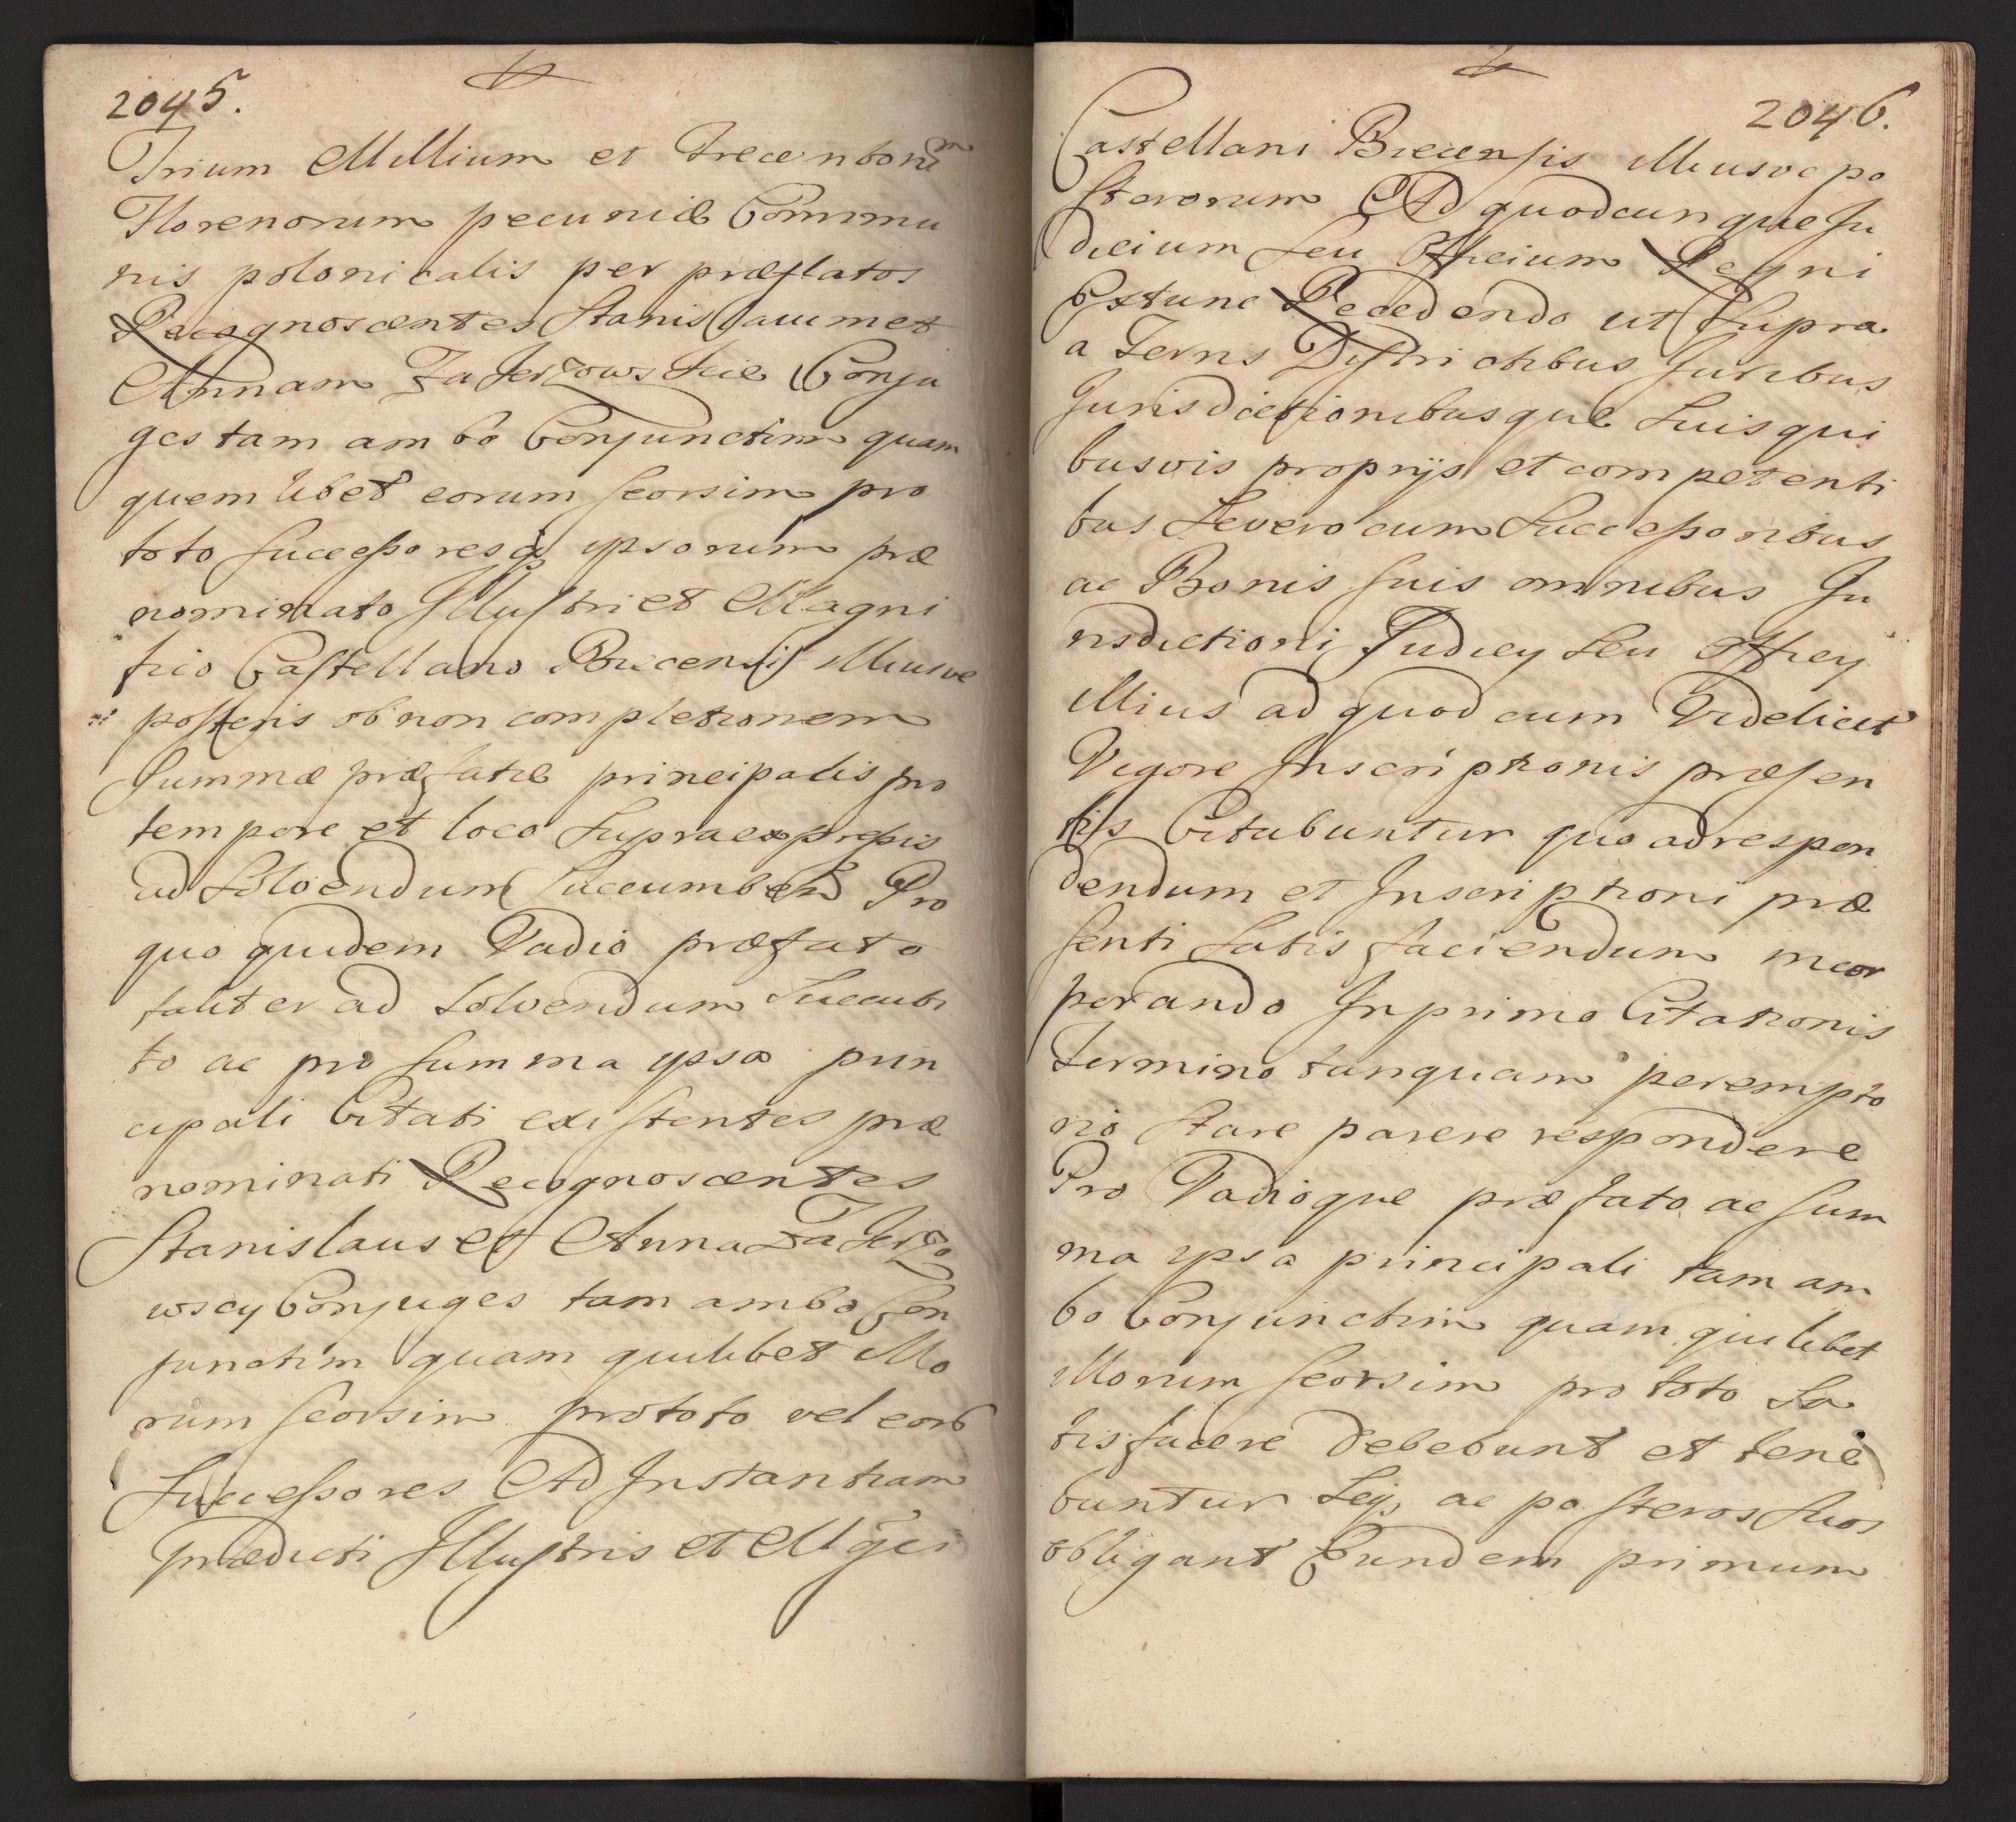 2045.
Trium Millium et Trecentorũm
Florenorum pecuniæ Commu
nis polonicalis per præfatos
Recognoscentes Stanislaum et
Annam Zajerzowskie Conju
ges tam ambo Conjunctim quam
quemlibet eorum seorsim pro
toto Successoresq ipsorum præ
nominato Illustri et Magni
fico Castellano Biecensi Illiusve
posteris ob non completionem
Summæ præfatæ principalis pro
tempore et loco Supraexpressis
ad Solvendum Succumben Pro
quo quidem Vadio præfato
taliter ad Solvendum Succubi
to ac pro Summa ypsa prin
cipali Citati existentes præ
nominati Recognoscentes
Stanislaus et Anna Zajerzo
wscy Conjuges tam ambo Con
junctim quam quilibet Illo
rum seorsim pro toto vel eor
Successores Ad Instantiam
prædicti Illustris et Mgci
2046.
Castellani Biecensis Illiusve po
sterorum Ad quodcunque Ju
dicium Seu Officium Regni
Extunc Recedendo ut Supra
a Terris Districtibus Juribus
Jurisdictionibusque Suis qui
busvis proprijs et competenti
bus Severo cum Successoribus
ac Bonis suis omnibus Ju
risdictioni Judicy Seu Officy
Illius ad quod cum Videlicet
Vigore Inscriptionis præsen
tis Citabuntur quo ad respon
dendum et Inscriptioni præ
senti Satis faciendum incor
porando In primo Citationis
Termino tanquam perempto
rio Stare parere respondere
Pro Vadioque præfato ac Sum
ma ypsa principali tam am
bo Conjunctim quam quilibet
Illorum seorsim pro toto Sa
tisfacere debebunt et tene
buntur Seq ac posteros suos
obligant Eundem primum